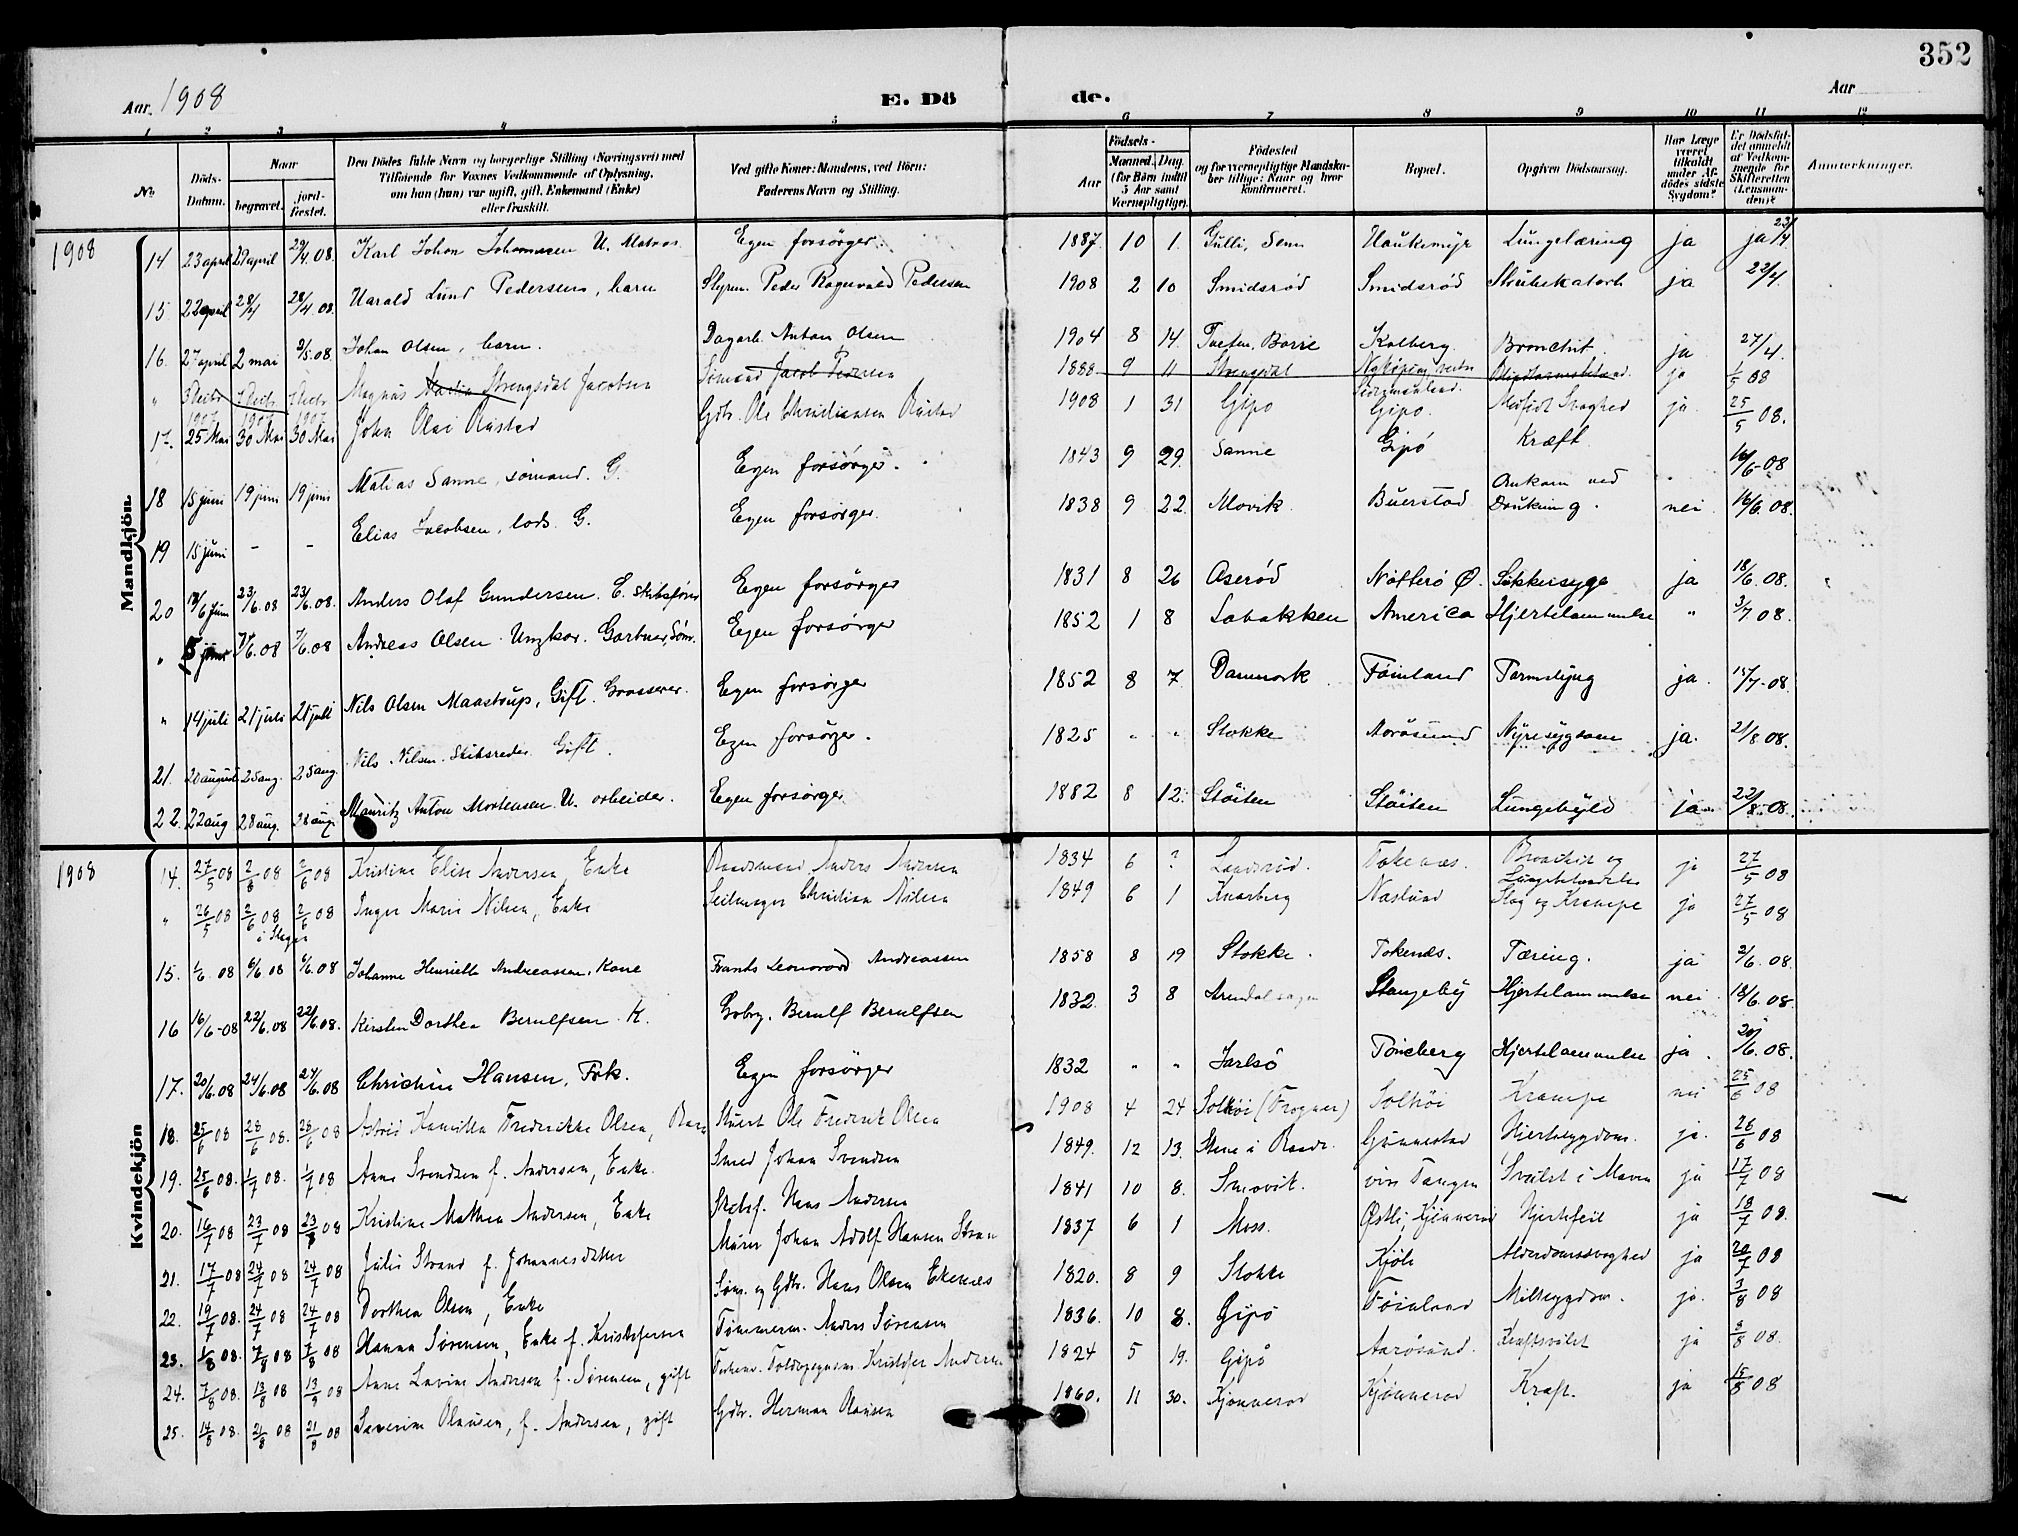 352
Aar 1908 E. Dö de. Aar
1 2 3 4 5 6 7 8 9 10 11 12
No. Döds-Datum. Naar begravet. jordfæstet. Den Dödes fulde Navn og borgerlige Stilling (Næringsvei) med Tilföiende for Voxnes Vedkommende af Oplysning, om han (hun) var ugift, gift, Enkemand (Enke) eller fraskilt. Ved gifte Koner: Mandens, ved Börn: Faderens Navn og Stilling. Födsels- Aar Maaned. Dag. (for Börn indtil 5 Aar samt Værnepligtige). Födested og for værnepligtige Mandskaber tillige: Naar og hvor konfirmeret. Bopæl. Opgiven Dödsaarsag. Har Læge været tilkaldt under Afdödes sidste Sygdom? Er Dödsfaldet anmeldt af Vedkommende for Skifteretten (Lensmanden)? Anmerkninger.
1908
Mandkjön
14 23 april 29 april 29/4.08. Karl Johan Johannesen U. Matros Egen forsörger 1887. 10 1. Gulli, Sem Haukemyr Lungetæring ja ja 23/4
15 22 april 28/4 28/4.08. Harald Lund Pedersen, barn Styrm. Peder Ragnvald Pedersen 1908 2 10 Smidsröd Smidsröd Strubekatarh ja 22/4.
16. 27 april 2 mai 2/5.08. Johan Olsen, barn. Dagarb. Anton Olsen 1904 8 14. Tveten, Borre Kolberg Bronchit. ja 27/4.
" 3 Decbr 1907 7 Decbr 1907 7 Decbr 1907 Magnus Strengsdal Jacobsen Sömand Jacob 1888 9 11 Strengsdal Nyköping ja 1/5 08
17. 25 Mai 30 Mai 30 Mai John Olai Rustad Gdbr. Ole Christiansen Rustad 1908 1 31 Gipö Gipö. Medfödt Svaghed ja. 25/5 08.
18 15 juni 19 juni 19 juni Matias Sanne, sömand. G. Egen forsörger. 1843 9 29. Sanne Gipö Kræft 16/6-08
19 15 juni - - Elias Jacobsen, lods. G. Egen forsörger. 1838 9 22. Movik Buerstad Omkom ved Drukning. nei 16/6.08.
20 18/6 Juni 23/6.08 23/6.08. Anders Olaf Gundersen. E. skibsförer Egen forsörger 1831 8 26 Oseröd Nötterö Ø. Sukkersyge ja 18/6.08.
" 5 juni 7/6.08 7/6.08 Andreas Olsen. Ungkar. Gartner, Söm. Egen forsörger 1852 1 8 Labakken America Hjertelammelse " 3/7 08.
" 14 juli 21 juli 21 juli Nils Olsen Maastrup, Gift. Grosserer. Egen forsörger 1852 8 7. Danmark Föinland Tarmslyng ja. 15/7-08.
21. 20 august 25 aug. 25 aug. Nils Nilsen. Skibsreder. Gift. Egen forsörger. 1825 " " Stokke Aarösund Nyresygdom ja. 21/8 08.
22. 22 aug 28 aug. 28 aug. Mauritz Anton Mortensen. U. arbeider. Egen forsörger 1882 8 12. Stöiten Stöiten Lungebyld ja 22/8-08.
1908
Kvindekjön
14. 27/5 08 2/6 08 2/6 08 Kristine Elise Andersen, Enke Baadsmand Anders Andersen 1834 6 ? Landsröd. Tokenæs. Bronchit og Lungebetændelse ja 27/5 08
" 26/5 08 2/6 08 i Slagen 2/6 08 Inger Marie Nilsen, Enke Seilmager Christian Nilsen 1849 6 1 Knarberg Næslund Slag og Krampe ja 27/5 08
15. 1/6.08 6/6.08 6/6.08 Johanne Henriette Andreassen, Kone Frants Leonard Andreassen 1858 8 19 Stokke. Tokenæs. Tæring. ja 2/6.08.
16 16/6-08 22/6.08 22/6.08. Kirsten Dorthea Berulfsen. K. Gobrg. Berulf Berulfsen 1832. 3 8 Arendal Stangeby Hjertelammelse nei 18/6.08.
17. 20/6.08 24/6.08 24/6.08 Christine Hansen, Frk. Egen forsörger 1832 " " Jarlsö Tönsberg Hjertelammelse ja. 20/6.08.
18. 25/6 08 28/6 08. 28/6 08 Astrid Kamilla Fredrikke Olsen, Barn Stuert Ole Fredrik Olsen 1908 4 24 Solhöi (Frogner) Solhöi Krampe nei 25/6 08
19. 25/6 08. 1/7 08. 1/7 08 Anne Svendsen f. Andersen, Enke. Smed Johan Svendsen 1849. 12 13. Stene i Gunnestad Hjertesygdom. ja. 26/6 08
20. 16/7 08 23/7 08 23/7 08 Kristine Mathea Andersen, Enke Skibsf. Hans Andersen 1841 10 8. Smörvik. Tangen Svulst i Maven ja 17/7 08
21. 17/7 08 24/7 08 24/7 08 Julie Strand f. Johannesdatter Murer Johan Adolf Hansen Stran 1837 6 1 Moss. Østli, Kjönneröd Hjertefeil ja 18/7 08.
22. 19/7 08. 24/7 08 24/7 08 Dorthea Olsen, Enke Söm. og Gdbr. Hans Olsen Ekenæs 1820. 8 9 Stokke Kjöle Alderdomssvaghed ja 20/7 08
23. 1/8 08. 7/8 08 7/8 08 Hanna Sörensen, Enke f. Kristofersen Tömmerm. Anders Sörensen 1836. 10 8. Gipö Föinland Miltsygdom. ja. 3/8 08
24. 7/8 08. 13/8 08 13/8 08 Anne Lavine Andersen f. Sörensen, gift Toldopsynsm Kristofer Andersen 1824 5 19. Gipö Aarösund. Kræftsvulst ja 8/8 08.
25. 14/8 08. 21/8 08 21/8 08 Severine Olausen, f. Andersen, gift Gdbr. Herman Olausen 1860. 11 30. Kjönneröd Kjönneröd Kræft. ja 15/8 08